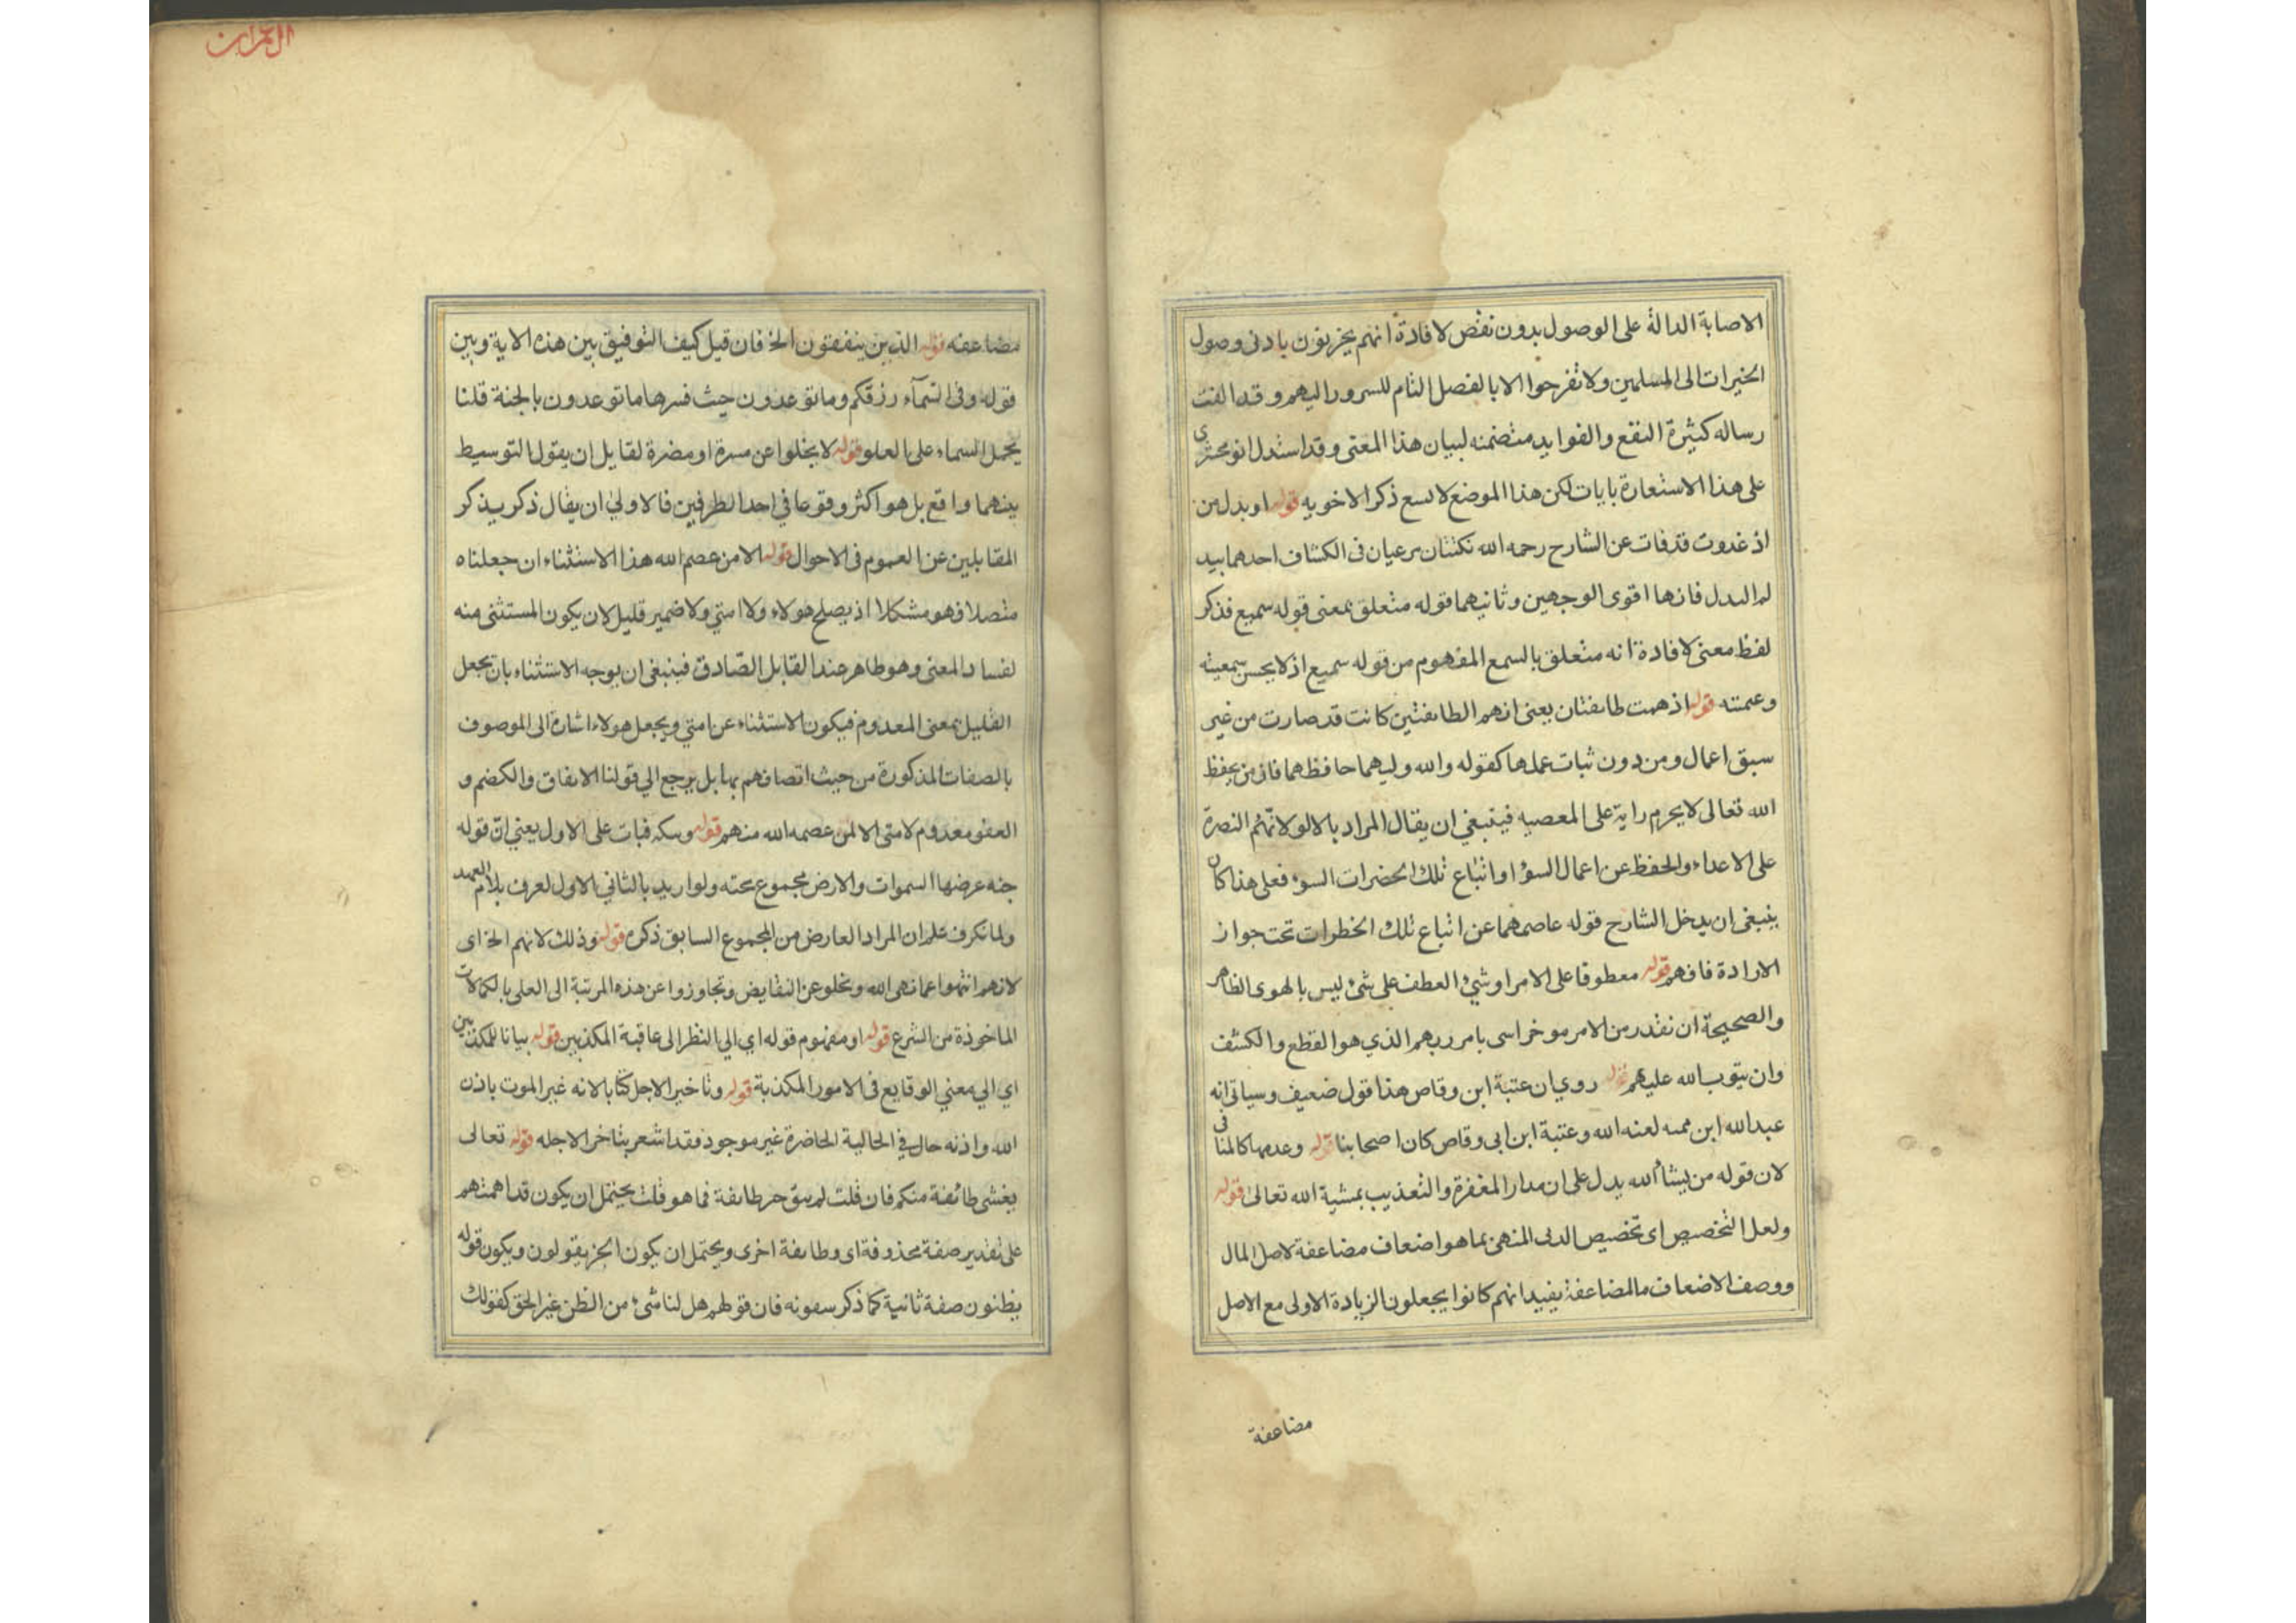 الاصابة الدالة على الوصول بدون نقص لافادة انهم يحزنون بادنى وصول
الخيرات الى المسلمين ولا تفرحوا الا بالفصل التام للسرور اليهم وقد الفت
رساله كثيرة النفع والفوايد متضمنه لبيان هذا المعنى وقد استدل
على هذا الاستعارة بايات لكن هذا الموضع لا يسع ذكر الاخويه قوله او بدل من
اذ غدوت قد فات عن الشارح رحمه الله نكتتان مرعيان فى الكشاف احدهما
البدل فانها اقوى الوجهين وثانيهما قوله متعلق بمعنى قوله سميع فذكر
لفظ معنى لافادة انه متعلق بالسمع المفهوم من قوله سميع اذ لا يحسن
قوله اذ همت طايفتان يعنى ان هم الطايفتين كانت قد صارت من غير
سبق اعمال ومن دون ثبات عملها كقوله والله وليهما حافظهما فان من يحفظ
الله تعالى لا يحرم راية على المعصيه فينبغي ان يقال المراد بالا لولا النصرة
على الاعداء والحفظ عن اعمال السؤ او اتباع تلك الخضرات السوء فعلى هذا كان
ينبغى ان يدخل الشارح قوله عاصمهما عن اتباع تلك الخطرات تحت جواز
الارادة فافهم قوله معطوفا على الامر او شئ العطف على شئ ليس بالهوى الظاهر
والصحيحة ان نقدر من الامر موخرا بامر ربهم الذي هو القطع والكشف
وان يتوب الله عليهم قوله روي ان عتبة ابن وقاص هذا قول ضعيف وسياتى انه
عبد الله ابن لعنه الله وعتبة ابن ابى وقاص كان اصحابنا قوله وعدمها كالمنافى
لان قوله من يشأ الله يدل على ان مدار المغفرة والتعذيب بمشية الله تعالى قوله
ولعل التخصيص اى تخصيص المنهى بما هو اضعاف مضاعفة لاصل المال
ووصف الاضعاف بالمضاعفة يفيد انهم كانوا يجعلون الزيادة الاولى مع الاصل
مضاعفة
ال عمران
مضاعفه قوله الذين ينفقون الخ فان قيل كيف التوفيق بين هذه الاية وبين
قوله وفى السمآء رزقكم وما توعدون حيث فسرها ما توعدون بالجنة قلنا
يحمل السماء على العلو قوله لا يخلوا عن مسرة او مضرة لقايل ان يقول التوسيط
بينهما واقع بل هو اكثر وقوعا في احد الطرفين فالاولي ان يقال ذكر يذكر
المقابلين عن العموم فى الاحوال قوله الا من عصم الله هذا الاستثناء ان جعلناه
متصلا فهو مشكلا اذ يصلح هولاء ولا امتي ولا ضمير قليل لان يكون المستثنى منه
لفساد المعنى وهو ظاهر عند القايل الصّادق فينبغى ان يوجه الاستثناء بان يجعل
القليل بمعنى المعدوم فيكون الاستثناء عن امتي ويجعل هولاء اشارة الى الموصوف
بالصفات المذكورة من حيث اتصافهم بها بل يرجع الي قولنا الانفاق والكضم و
العفو معدوم لامتى الا لمن عصمه الله منهم قوله على الاول يعني انّ قوله
جنه عرضها السموات والارض مجموع ولو اريد بالثاني الاول لعرف بلام العهد
ولما نكرف علم ان المراد العارض من المجموع السابق ذكره قوله وذلك لانهم الخ اى
لانهم انتهوا عما نهى الله وتخلو عن النقايض وتجاوزوا عن هذه المرتبة الى العلى بالكمالات
الماخوذة من الشرع قوله او مفهوم قوله اي الي النظر الى عاقبة المكذبين قوله بيانا للمكذبين
اي الي معني الوقايع فى الامور المكذبة قوله وتاخير الاجل كتابا لانه غير الموت باذن
الله واذنه حال في الحالية الحاضرة غير موجود فقد اشعر بتاخر الاجله قوله تعالى
يغشى طائفة منكم فان قلت لم طايفة فما هو قلت يحتمل ان يكون قد اهمتهم
على تقدير صفة محذوفة اى وطايفة اخرى ويحتمل ان يكون الخبر يقولون ويكون قوله
يظنون صفة ثانية كما ذكر فان قولهم هل لنا شئ من الظن غير الحق كقولك